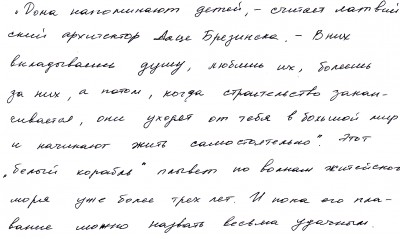 „Дома напоминают детей, – считает латвий
ский архитектор Алце Брезинска. – В них
вкладываешь душу, любишь их, болеешь
за них, а потом, когда строительство закан-
чивается, они уходят от тебя в большой мир
и начинают жить самостоятельно". Этот
„белый корабль" плывет по волнам житейского
моря уже более трех лет. И пока его пла-
вание можно назвать весьма удачным.